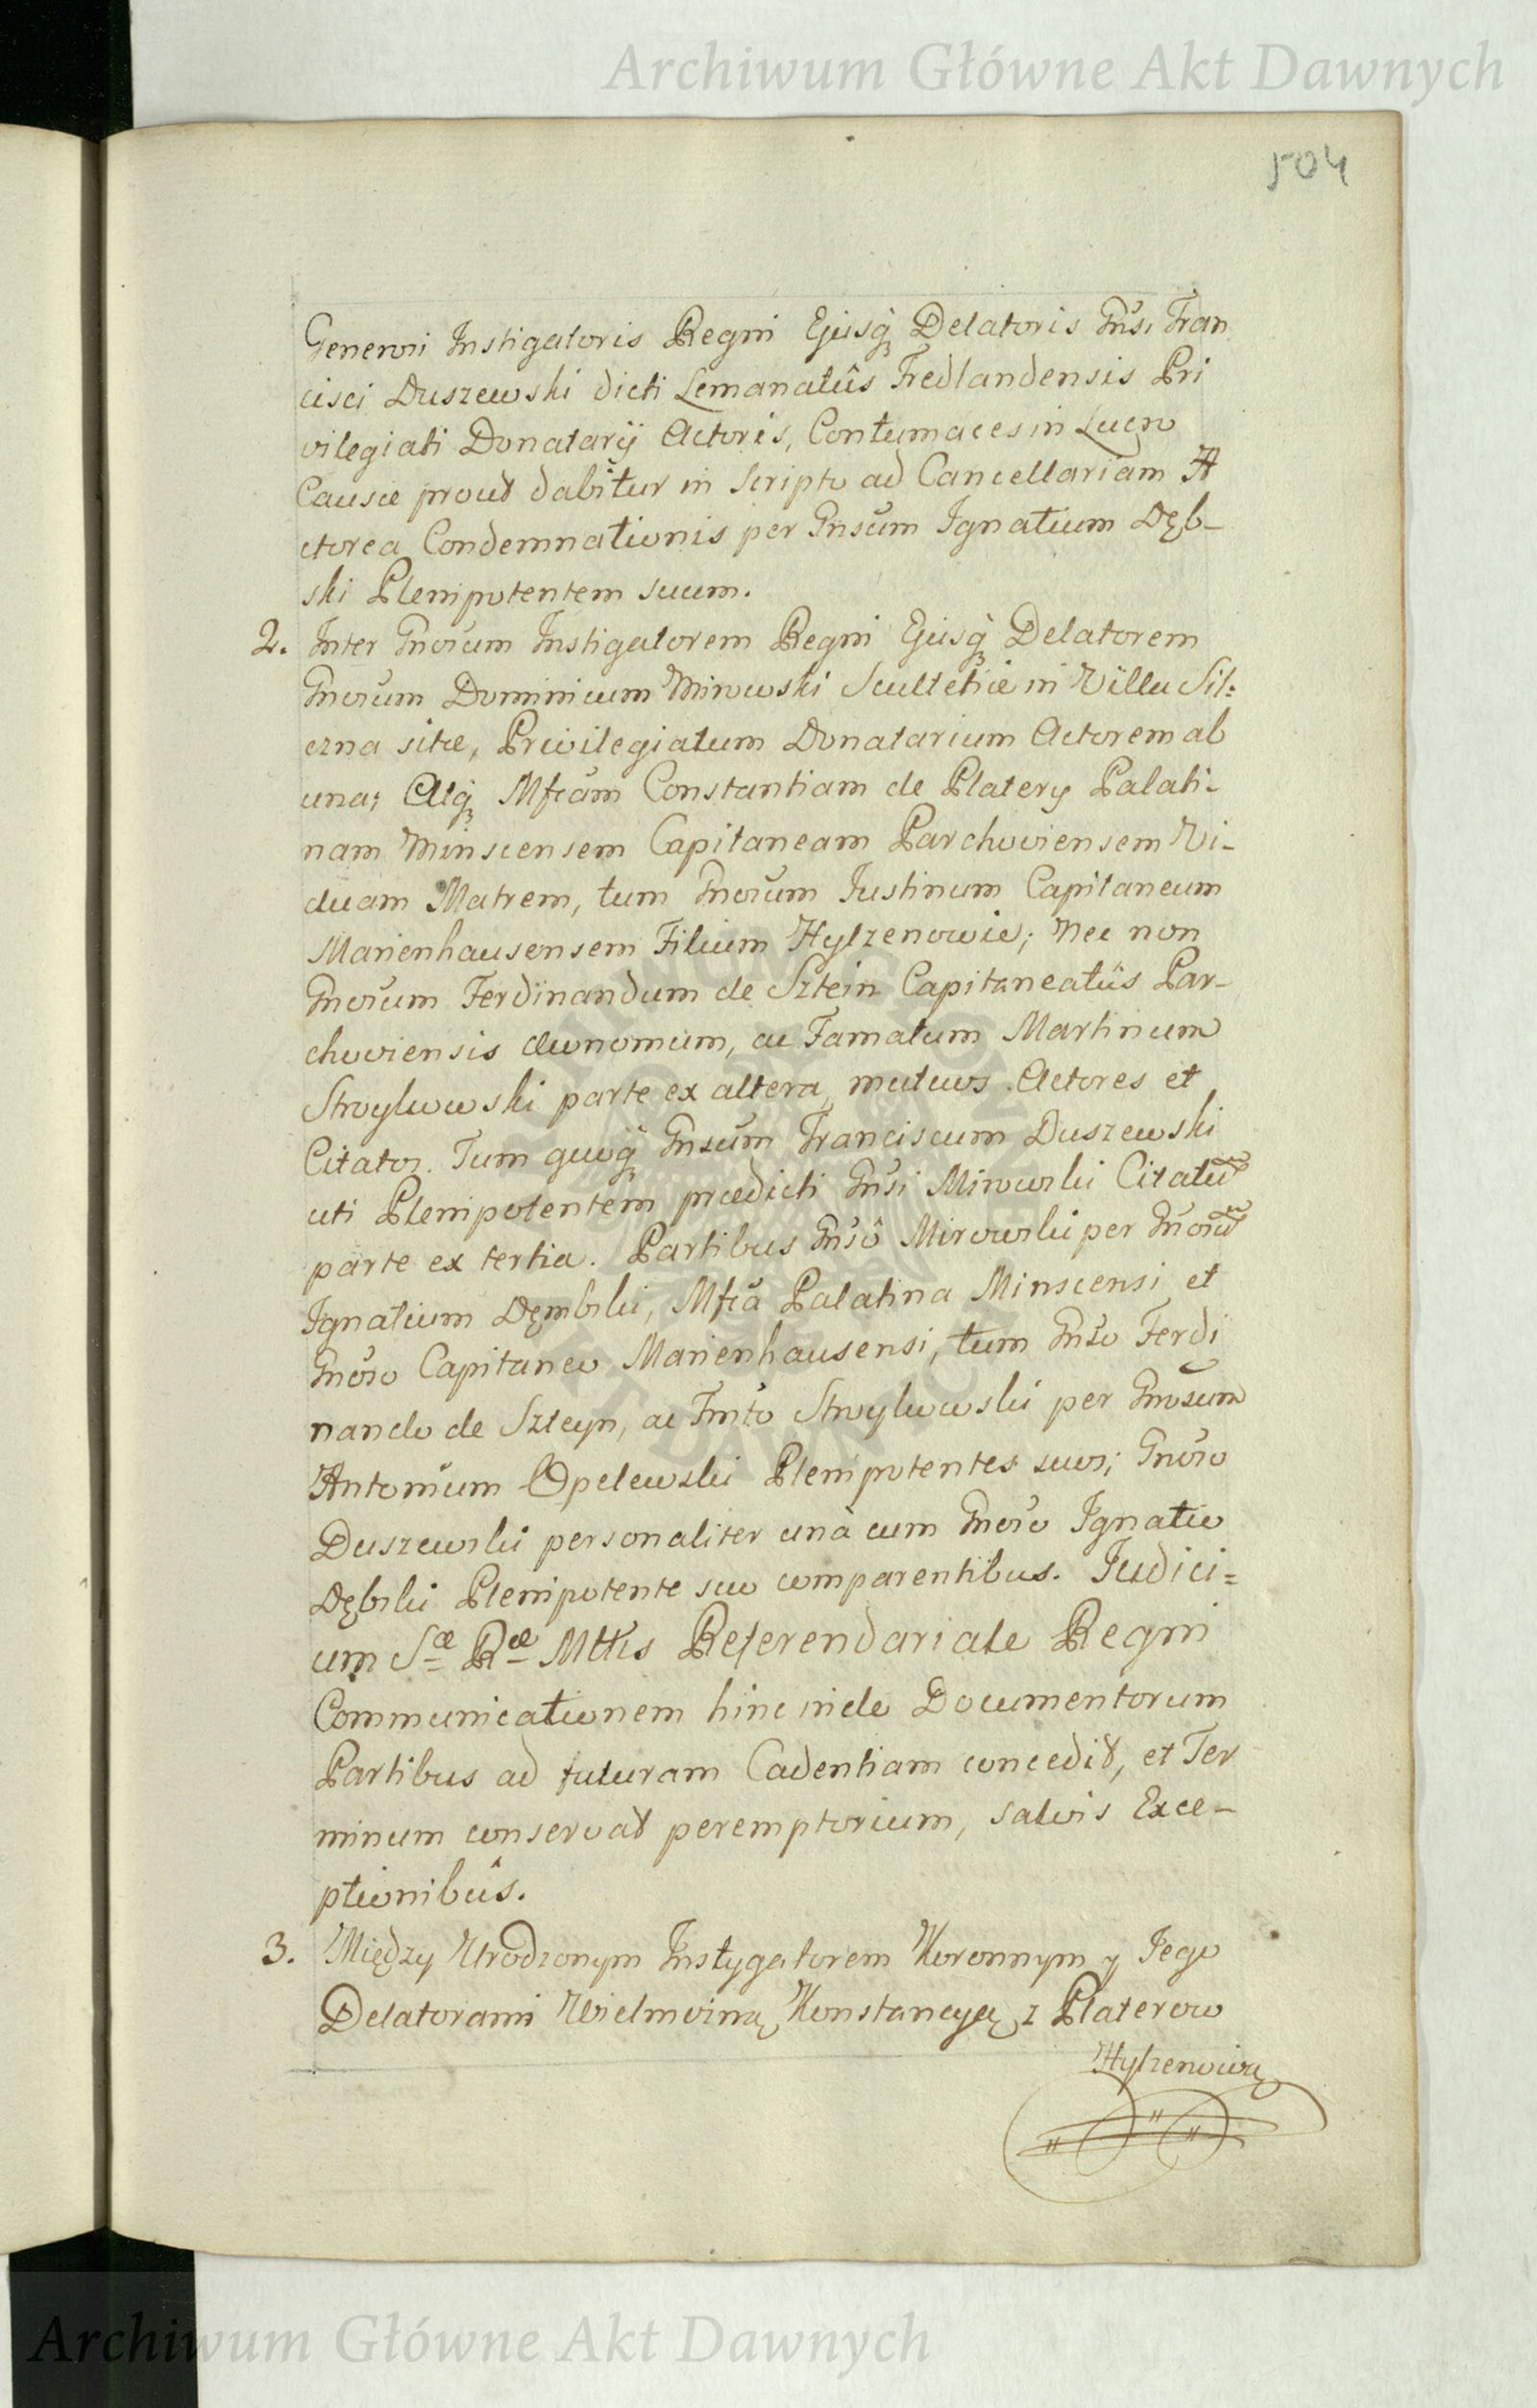 Archiwum Główne Akt Dawnych
504
Generosi Instigatoris Regni Ejusq̃ Delatoris Gnsi Fran
cisci Duszewski dicti Lemanatûs Fredlandensis Pri
vilegiati Donatarij Actoris, Contumaces in Lucro
Causæ prout dabitur in Scripto ad Cancellariam A
ctorea Condemnationis per Gnsum Ignatium Dęb-
ski Plenipotentem suum.
2. Inter Gnosum Instigatorem Regni Ejusq̃ Delatorem
Gnosum Dominicum Mirowski Scultetiæ in Villa Sil=
czna sitæ, Privilegiatum Donatarium Actorem ab
una; Atq̃ Mfcam Constantiam de Platery Palati-
nam Minscensem Capitaneam Parchoviensem Vi-
duam Matrem, tum Gnosum Justinum Capitaneum
Marienhausensem Filium Hylzenowie; Nec non
Gnosum Ferdinandum de Sztein Capitaneatûs Par-
choviensis Œconomum, ac Famatum Martinum
Stroylowski parte ex altera, mutuos Actores et
Citatos. Tum quoq̃ Gnsum Franciscum Duszewski
uti Plenipotentem prædicti Gnsi Mirowski Citatũ
parte ex tertia. Partibus Gnsô Mirowski per Gnosũ
Ignatium Dęmbski, Mfcã Palatina Minscensi et
Gnoso Capitaneo Marienhausensi, tum Gnso Ferdi
nando de Szteyn, ac Fmto Stroylowski per Gnosum
Antonium Opelewski Plenipotentes suos; Gnoso
Duszewski personaliter unà cum Gnoso Ignatio
Dębski Plenipotente suo comparentibus. Judici=
um Sæ Ræ Mttis Referendariale Regni
Communicationem hinc inde Documentorum
Partibus ad futuram Cadentiam concedit, et Ter
minum conservat peremptorium, salvis Exce-
ptionibûs.
3. Między Urodzonym Instygatorem Koronnym y Jego
Delatorami Wielmożną Konstancyą z Platerow
Hylzenową
Archiwum Główne Akt Dawnych